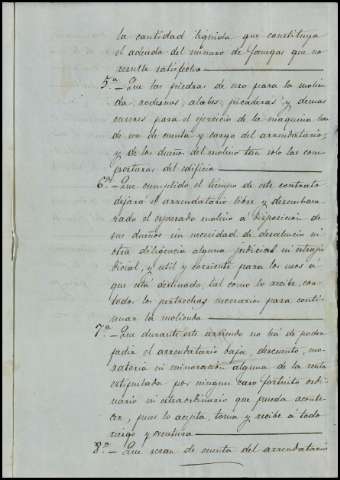 la cantidad líquida que constituya
el adeudo del número de fanegas que no
resulte satisfecho
5ª - Que las piedras de uso para la molien
da, rodesnos, alabes, picaderas y demas
enseres para el ejercicio de la maquina han
de ser de cuenta y cargo del arrendatario;
y de los dueños del molino tan solo las com
posturas del edificio
6ª - Que cumplido el tiempo de este contrato
dejará el arrendatario libre y desembara
zado el espresado molino á disposicion de
sus dueños sin necesidad de desahucio ni
otra diligencia alguna judicial ni estraju
dicial, y util y corriente para los usos á
que está destinado, tal como lo recibe, con
todos los pertrechos necesarios para conti
nuar la molienda
7ª - Que durante este arriendo no ha de poder
pedir el arrendatario baja, descuento, mo
ratoria ni minoracion alguna de la renta
estipulada por ningun caso fortuito ordi
nario ni estraordinario que pueda aconte
cer, pues lo acepta, toma y recibe á todo
riesgo y ventura
8ª - Que seran de cuenta del arrendatario